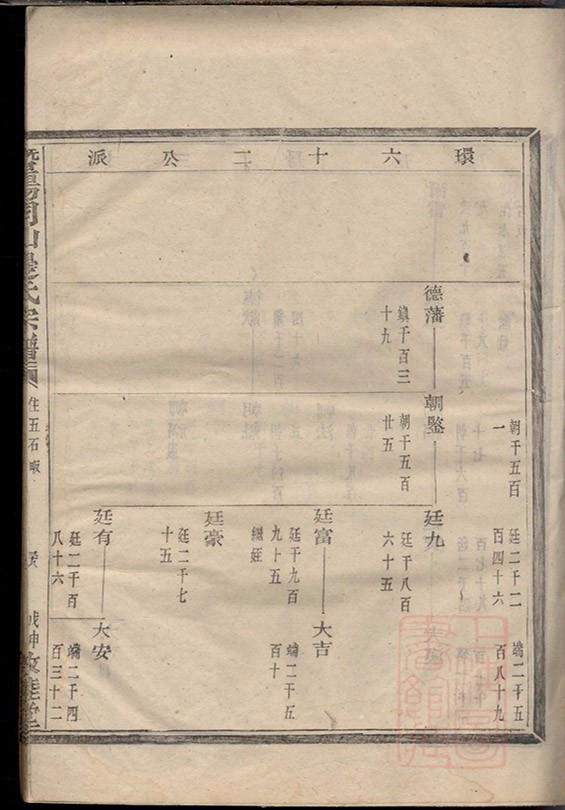 環六十二公派
朝千五百
一
廷二千二
百四十六
端二千五
百八十九
德藩
朝鑒
廷九
鎮千百三
十九
朝千五百
廿五
廷千八百
六十五
廷富
大吉
廷千九百
九十五
繼姪
端二千五
百十
廷豪
廷二千七
十五
廷有
大安
廷二千百
八十六
端二千四
百三十二
氏宗譜
住五石
戊申